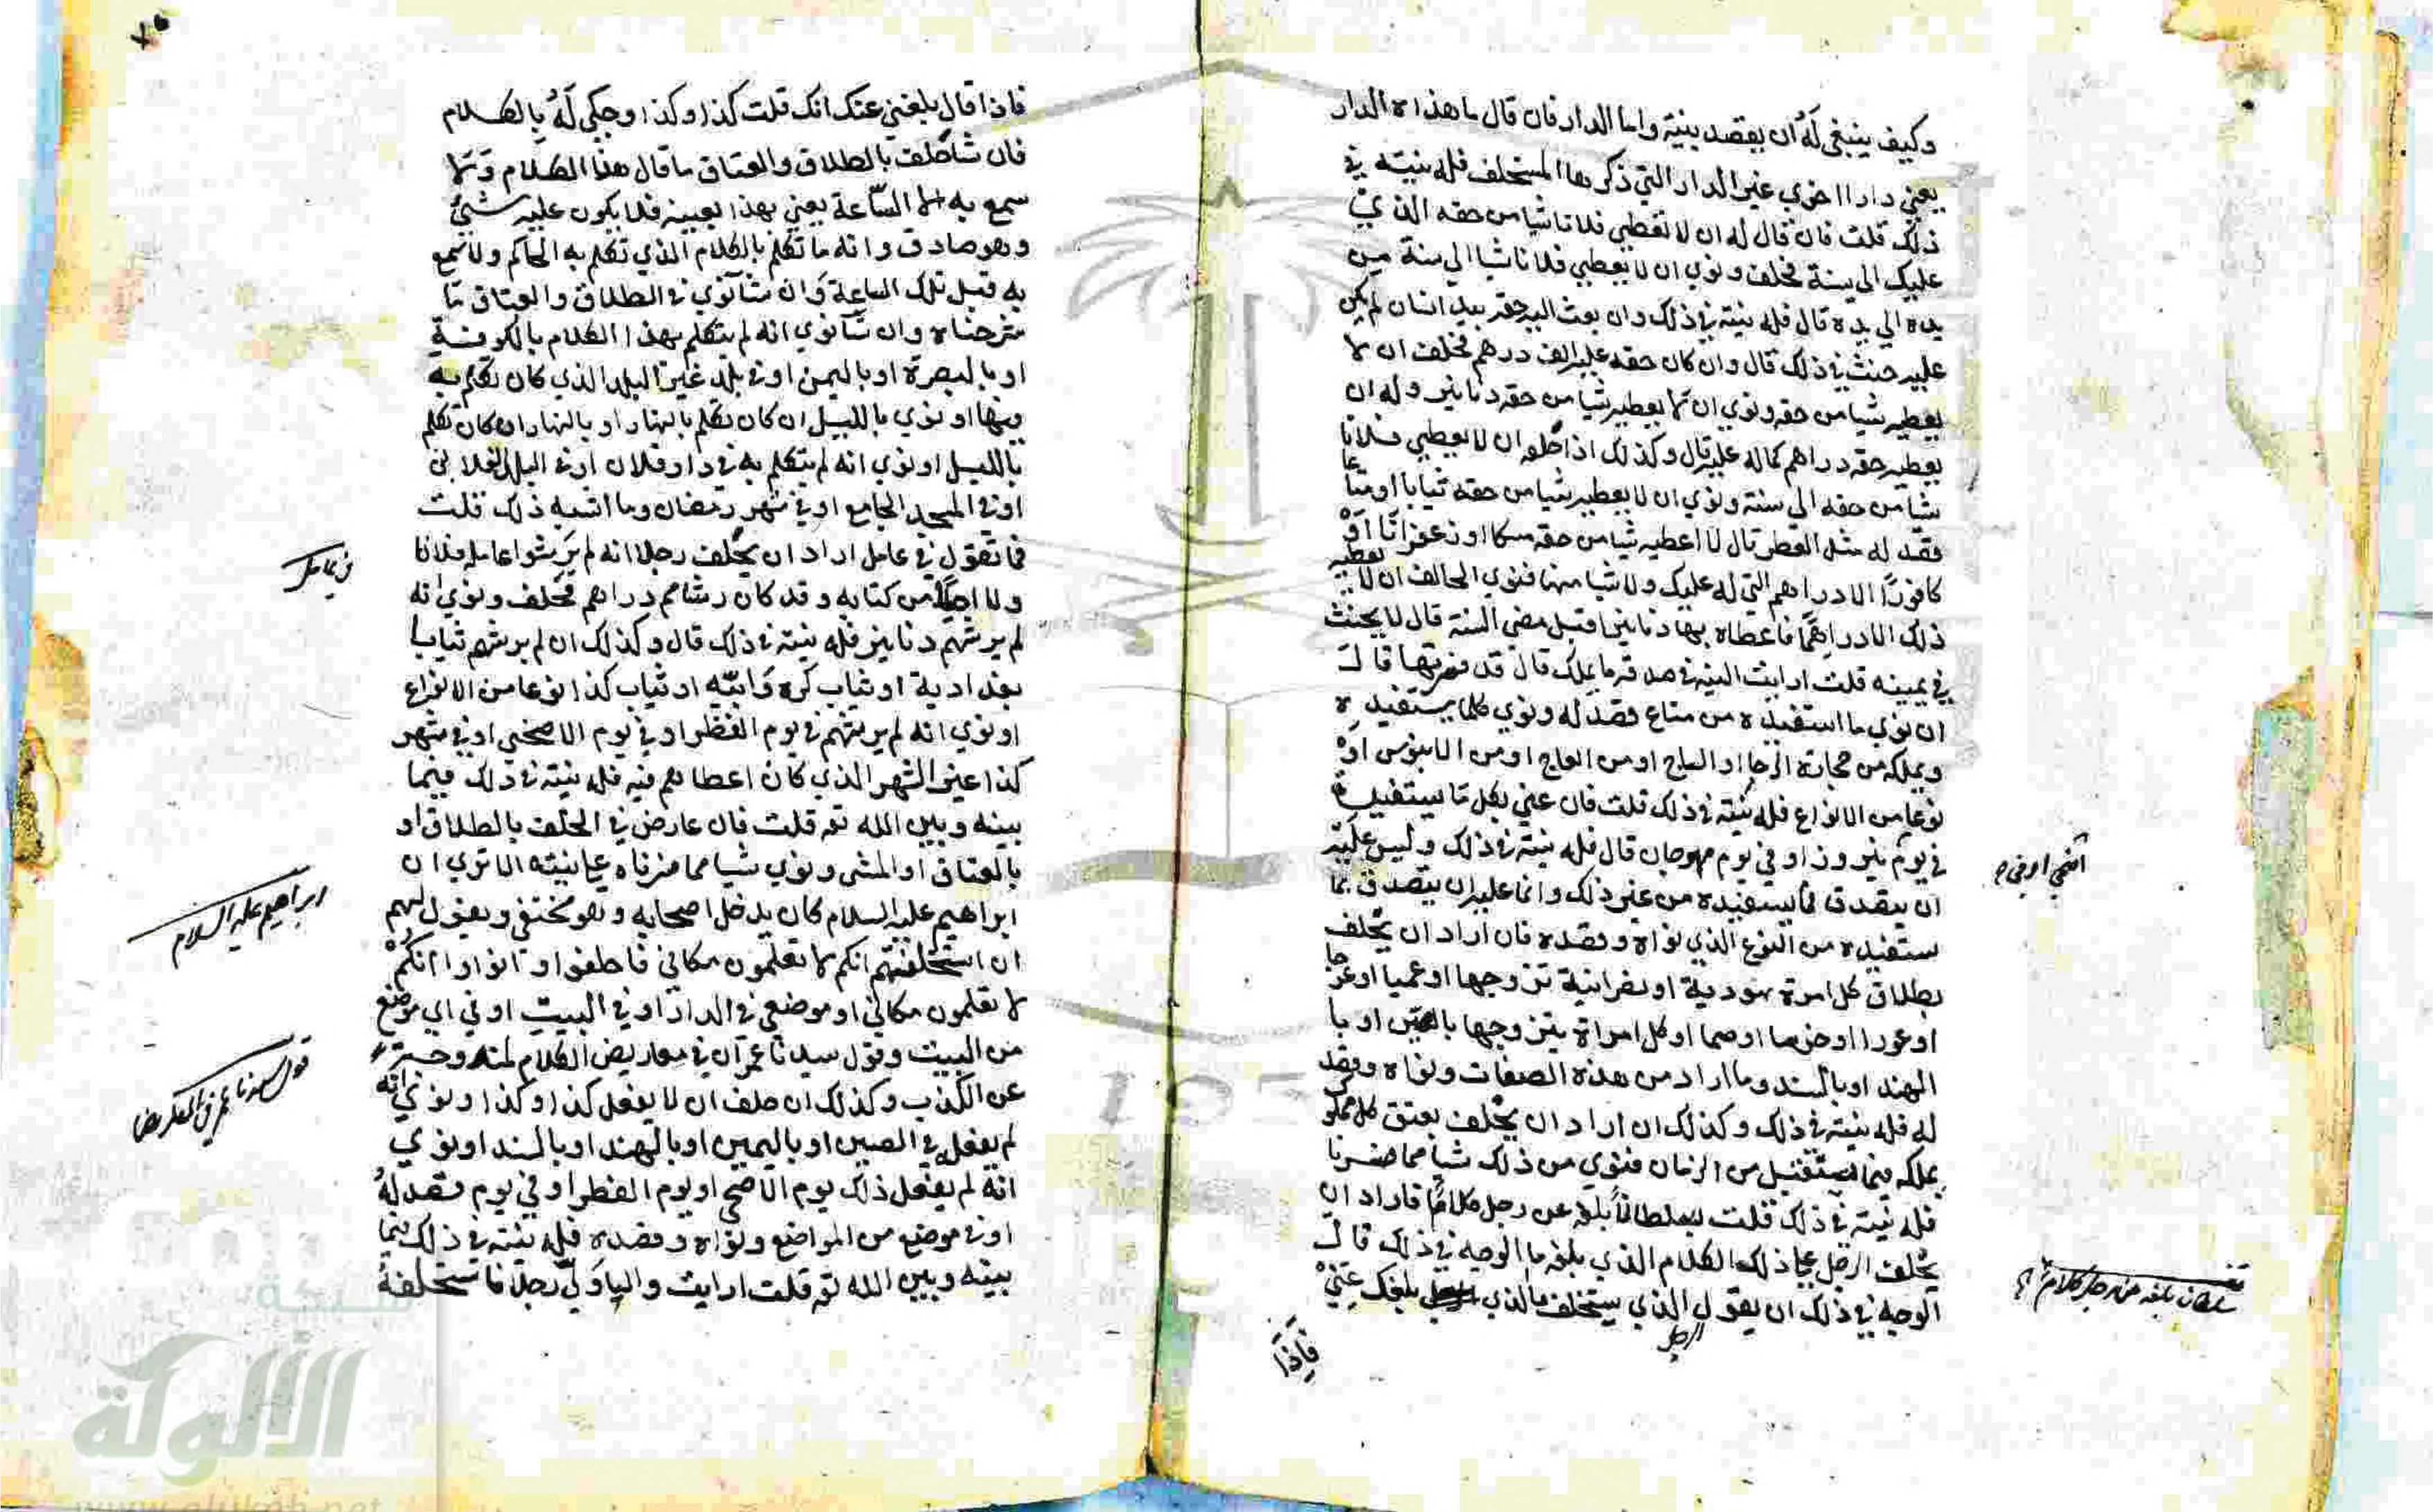 وكيف ينبغي له ان يقصد بنيته واما الدار فان قال ما هذا ه الدار
يعني دارا اخري غير الدار التي ذكرها المستحلف فله نيته في
ذلك قلت فان قال له ان لا تعطي فلانا شيا من حقه الذي
عليك الي سنة فحلف ونوي ان لا يعطي فلانا شيا الي سنة من
يده الي يده قال فله نيته في ذلك وان بعث اليه حقه بيد انسان لم يكن
عليه حنث في ذلك قال وان كان حقه عليه الف درهم فحلف ان لا
يعطيه شيا من حقه ونوي ان لا يعطيه شيا من حقه دنانير وله ان
يعطيه حقه دراهم كماله عليه قال وكذلك اذا حلفه ان لا يعطي فلانا
شيا من حقه الي سنة ونوي ان لا يعطيه شيا من حقه ثيابا او متاعا
فقصد له مثل العطر قال لا اعطيه شيا من حقه مسكا او زعفرانا او
كافورا الا دراهم التي له عليك ولا شيا منها فنوي الحالف ان لا يعطيه
ذلك الا دراهما فاعطاه بها دنانير قبل مضي السنة قال لا يحنث
في يمينه قلت ارايت النية في صدقة ما يملك قال قد فسرتها قال
ان نوي ما استفيده من متاع فقصد له ونوي كلما يستفيده
ويملكه من حجارة الرحا او الساج او من العاج او من الابنوس او
نوعا من الانواع فله نيته في ذلك قلت فان عني بكل ما يستفيده
في يوم نيروز او في يوم مهرجان قال فله نيته في ذلك وليس عليه
ان يتصدق بما يستفيده من غير ذلك وانما عليه ان يتصدق بما
يستفيده من النوع الذي نواه وقصده فان اراد ان يحلف
بطلاق كل امرة يهودية او نصرانية تزوجها او عميا او عرجا
او عورا او خرسا او صما او كل امراة يتزوجها بالصين او با
الهند او بالسند وما اراد من هذه الصفات ونواه وقصد
له فله نيته في ذلك وكذلك ان اراد ان يحلف بعتق كل مملوك
يملكه فيما يستقبل من الزمان فنوي من ذلك شيا مما فسرنا
فله نيته في ذلك قلت سلطانا بلغه عن رجل كلاما فاراد ان
يحلف الرجل علي ذلك الكلام الذي بلغه ما الوجه في ذلك قال
الوجه في ذلك ان يقول الذي يستحلف ما الذي بلغك عني
الرجل
فاذا
سلطان بلغه عن رجل كلام
فاذا قال بلغني عنك انك قلت كذا وكذا وحكي له بالكلام
فان شا حلف بالطلاق والعتاق ما قال هذا الكلام ولا
سمع به الا الساعة يعني بهذا بعينه فلا يكون عليه شي
وهو صادق وانه ما تكلم بالكلام الذي تكلم به الحاكم ولا سمع
به قبل تلك الساعة وان شا نوي في الطلاق والعتاق ما
شرحناه وان شا نوي انه لم يتكلم بهذا الكلام بالكوفة
او بالبصرة او باليمن او في بلد غير البلد الذي كان تكلم به
فيها او نوي بالليل ان كان تكلم بالنهار او بالنهار ان كان تكلم
بالليل او نوي انه لم يتكلم به في دار فلان او في البلد الفلاني
او في المسجد الجامع او في شهر رمضان وما اشبه ذلك قلت
فما تقول في عامل اراد ان يحلف رجلا انه لم يرشوا عامله فلانا
ولا احدا من كتابه وقد كان رشاهم دراهم فحلف ونوي انه
لم يرشهم دنانير فله نيته في ذلك قال وكذلك ان لم يرشهم ثيابا
بغدادية او ثياب كذا نوعا من الانواع
او نوي انه لم يرشهم في يوم الفطر او في يوم الاضحي او في شهر
كذا غير الشهر الذي كان اعطاهم فيه فله نيته في ذلك فيما
بينه وبين الله قلت فان عارض في الحلف بالطلاق او
بالعتاق او المشي ونوي شيا مما فسرناه علي نيته الا تري ان
ابراهيم عليه السلام كان يدخل اصحابه وهو مختفي ويقول لهم
ان استحلفتم انكم لا تعلمون مكاني فاحلفوا وانووا انكم
لا تعلمون مكاني او موضعي في الدار او في البيت او في اي موضع
من البيت وقول سيدنا عمر ان في معاريض الكلام لمندوحة
عن الكذب وكذلك ان حلف ان لا يفعل كذا وكذا ونوي انه
لم يفعله في الصين او باليمين او بالهند او بالسند او نوي
انه لم يفعل ذلك يوم الاضحي او يوم الفطر او في يوم قصد له
او في موضع من المواضع ونواه وقصده فله نيته في ذلك فيما
بينه وبين الله قلت ارايت واليا ولي رجلا فاستحلفه
في عامل
ابراهيم عليه السلام
قول سيدنا عمر في المعاريض
شبكة
الألوكة
www.alukah.net